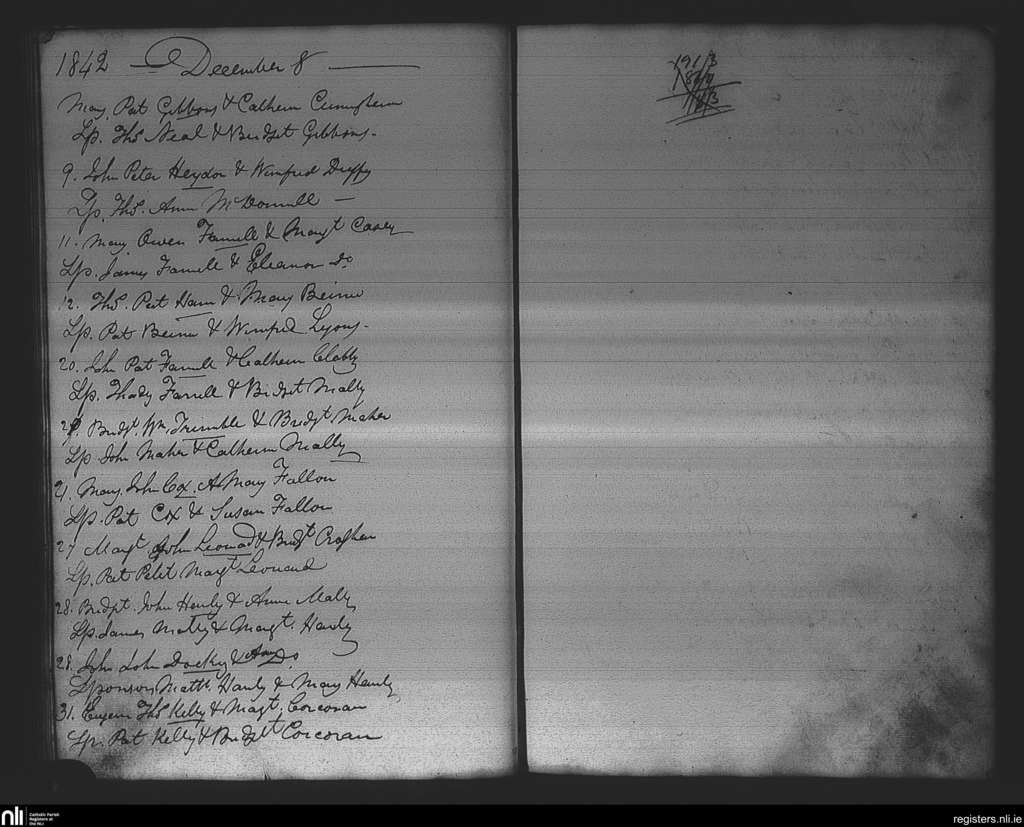 1842 December 8
Mary, Pat Gibbons & Catherin Cuningham
Sp. Ths Neal & Bridget Gibbons.
9. John Peter Heydon & Winifred Duffy
Sp. Ths. Ann McDonnell
11. Mary Owen Farrell & Margt Casey
Sp. James Farrell & Eleanor Do
12. Ths. Pat Hann & Mary Beirne
Sp. Pat Beirne & Winifred Lyons.
20. John Pat Farrell & Catherin Clabby
Sp. Thady Farrell & Bridget Mally
Bridgt. Wm. Trimble & Bridgt Maher
Sp John Maher & Catherin Mally
21. Mary John Cox & Mary Fallon
Sp. Pat Cox & Susan Fallon
27 Margt John Leonard & Bridgt Croghan
Sp. Pat Petit Margt Leonard
28. Bridgt. John Henly & Anne Mally
Sp. James Mally & Margt. Hanly
28. John John Dockry & Do.
Sponsors Matt. Hanly & Mary Hanly
31. Eugen Ths Kelly & Magt. Corcoran
Sp. Pat Kelly & Bridgt Corcoran
nli
Catholic Parish
Registers at
the NLI
registers.nli.ie